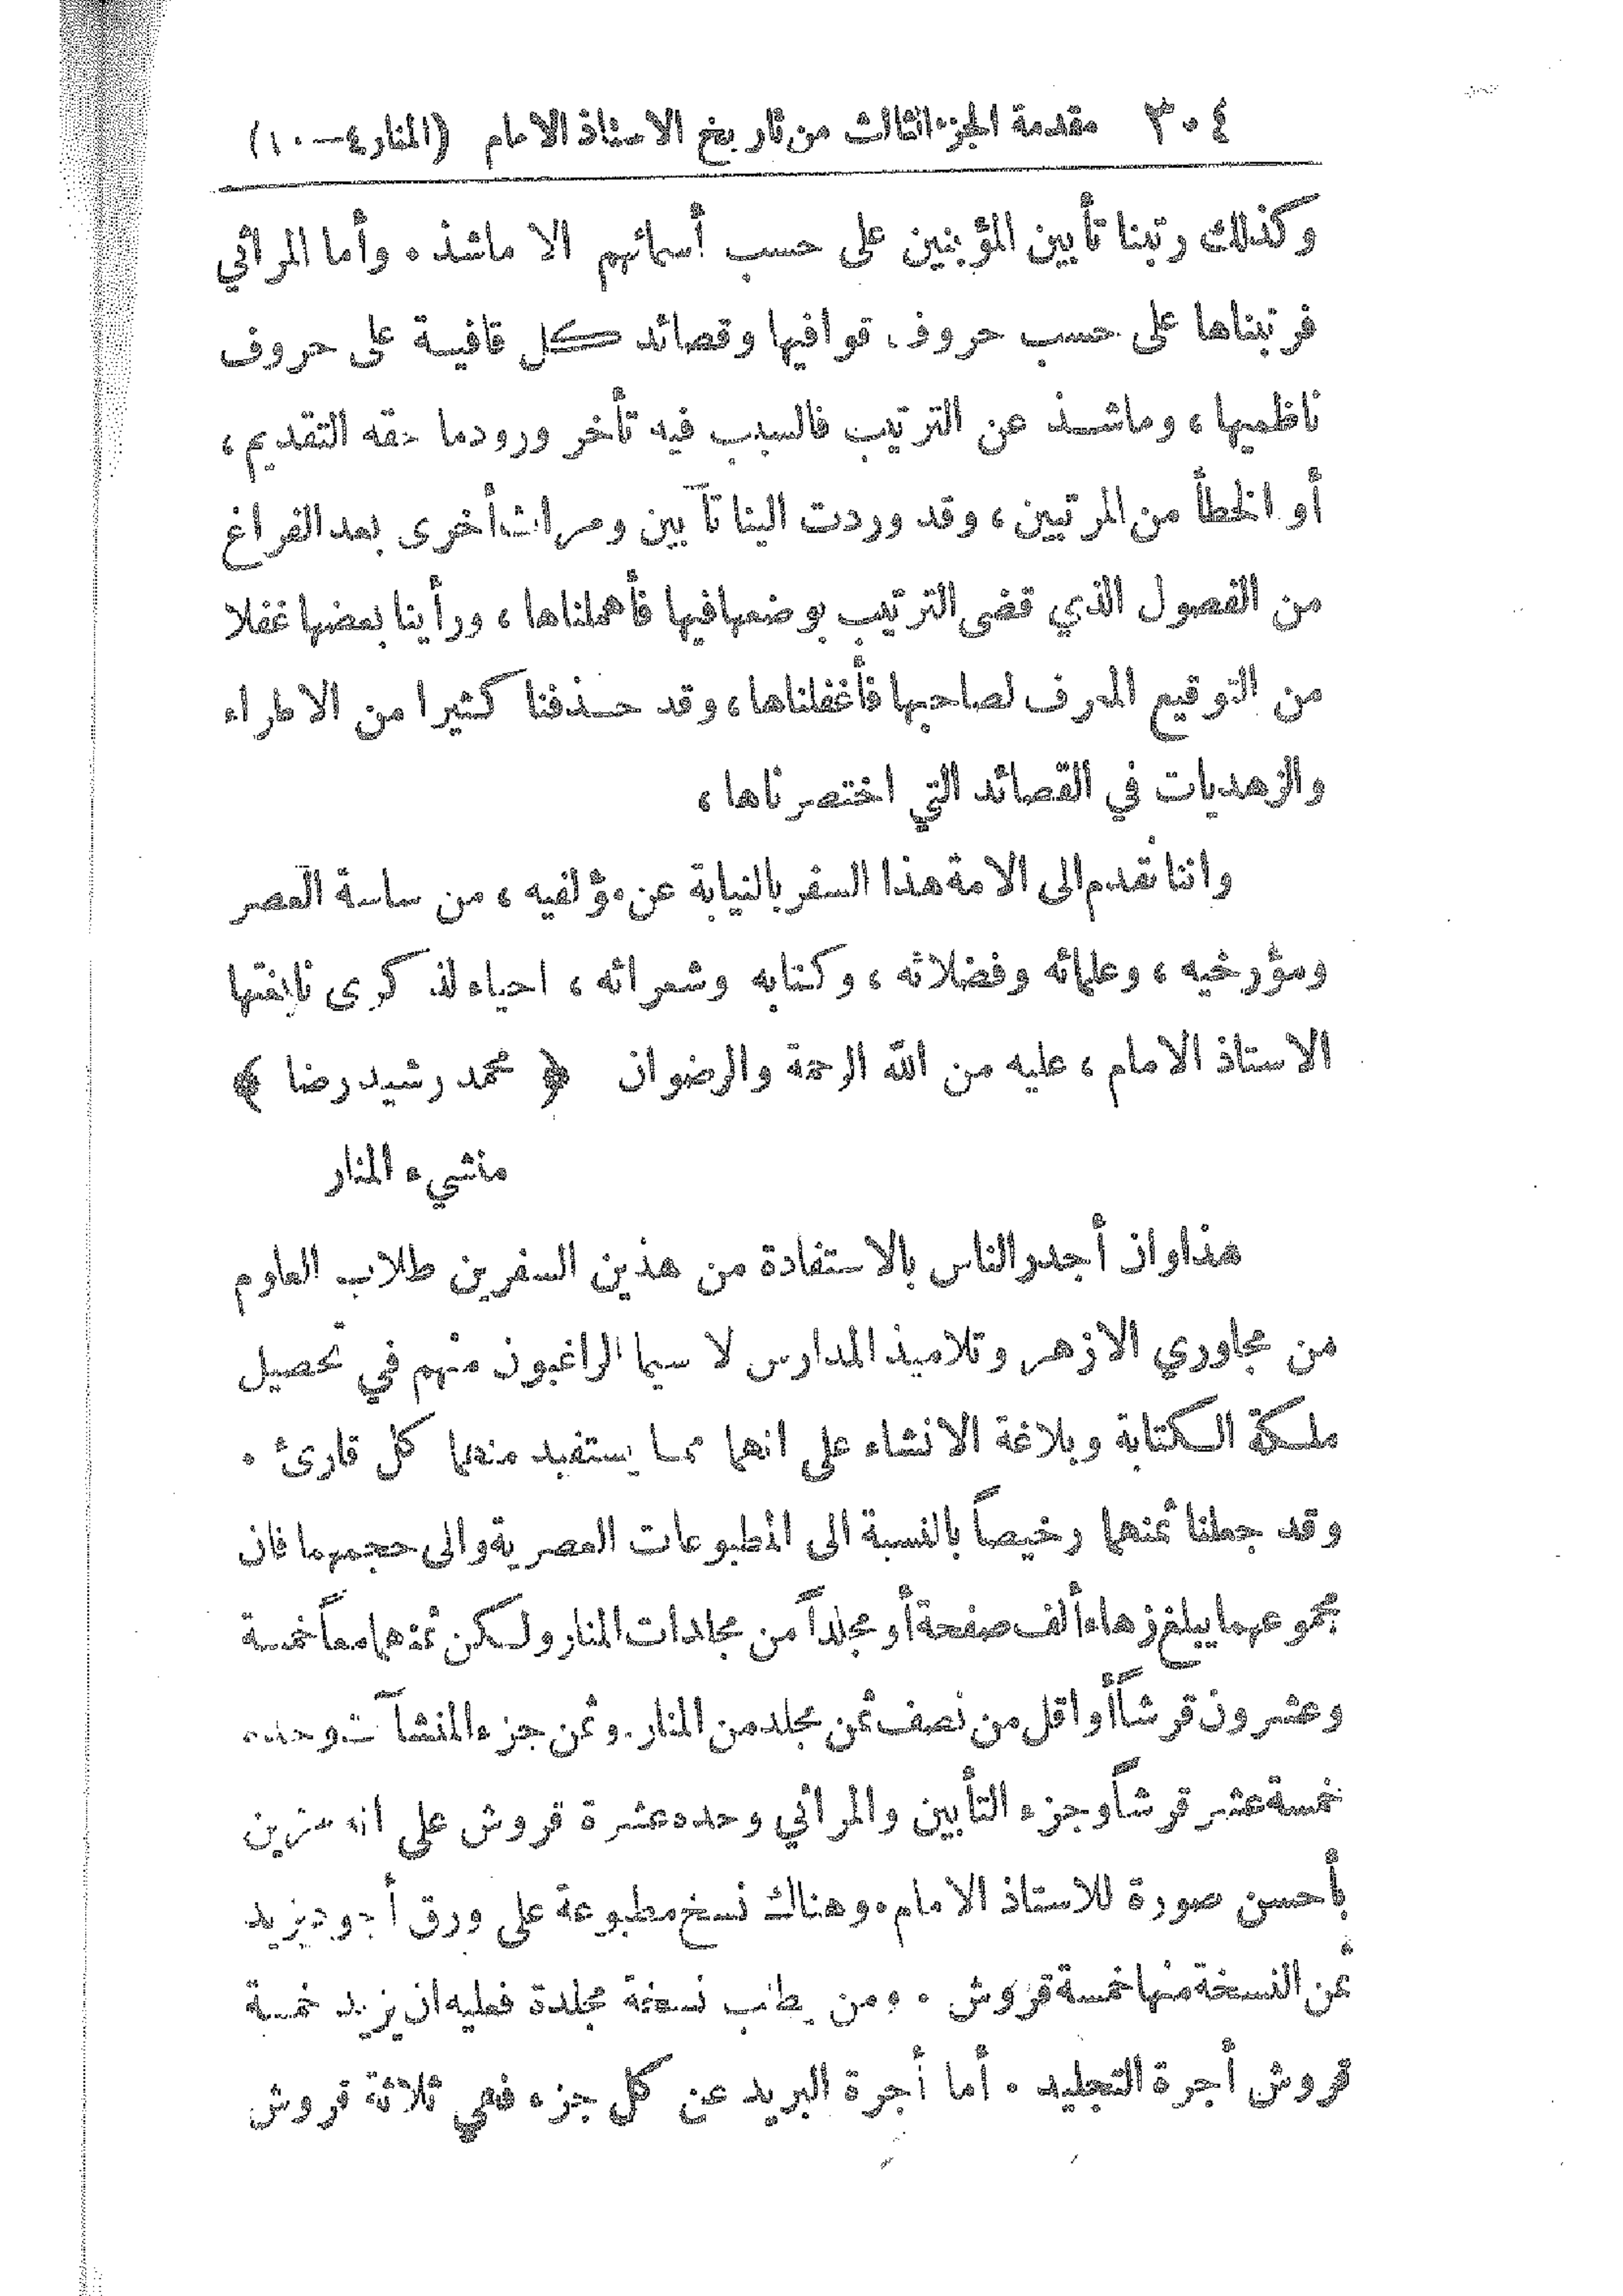 ٣٠٤ مقدمة الجزء الثالث من تاريخ الاستاذ الامام (المنار ٤ — ١٠)
وكذلك رتبنا تأبين المؤبنين على حسب أسمائهم الا ماشذ . وأما المراثي
فرتبناها على حسب حروف قوافيها وقصائد كل قافية على حروف
ناظميها ، وماشذ عن الترتيب فالسبب فيه تأخر ورود ما حقه التقديم ،
أو الخطأ من المرتبين ، وقد وردت الينا تآبين ومراث أخرى بعد الفراغ
من الفصول الذي قضى الترتيب بوضعها فيها فأهملناها ، ورأينا بعضها غفلا
من التوقيع المعرف لصاحبها فأغفلناها ، وقد حذفنا كثيرا من الاطراء
والزهديات في القصائد التي اختصرناها ،
واننا نقدم الى الامة هذا السفر بالنيابة عن مؤلفيه ، من ساسة العصر
ومؤرخيه ، وعلمائه وفضلائه ، وكتابه وشعرائه ، احياء لذكرى نابغتها
الاستاذ الامام ، عليه من الله الرحمة والرضوان ﴿ محمد رشيد رضا ﴾
منشيء المنار
هذا وان أجدر الناس بالاستفادة من هذين السفرين طلاب العلوم
من مجاوري الازهر وتلاميذ المدارس لا سيما الراغبون منهم في تحصيل
ملكة الكتابة وبلاغة الانشاء على انهما مما يستفيد منهما كل قارئ .
وقد جعلنا ثمنهما رخيصاً بالنسبة الى المطبوعات العصرية والى حجمهما فان
مجموعهما يبلغ زهاء ألف صفحة أو مجلداً من مجلدات المنار ولكن ثمنهما معاً خمسة
وعشرون قرشاً أو اقل من نصف ثمن مجلد من المنار . وثمن جزء المنشآت وحده
خمسة عشر قرشاً وجزء التأبين والمراثي وحده عشرة قروش على انه مزين
بأحسن صورة للاستاذ الامام . وهناك نسخ مطبوعة على ورق أجود يزيد
ثمن النسخة منها خمسة قروش . ومن يطلب نسخة مجلدة فعليه ان يزيد خمسة
قروش أجرة التجليد . أما أجرة البريد عن كل جزء فهي ثلاثة قروش